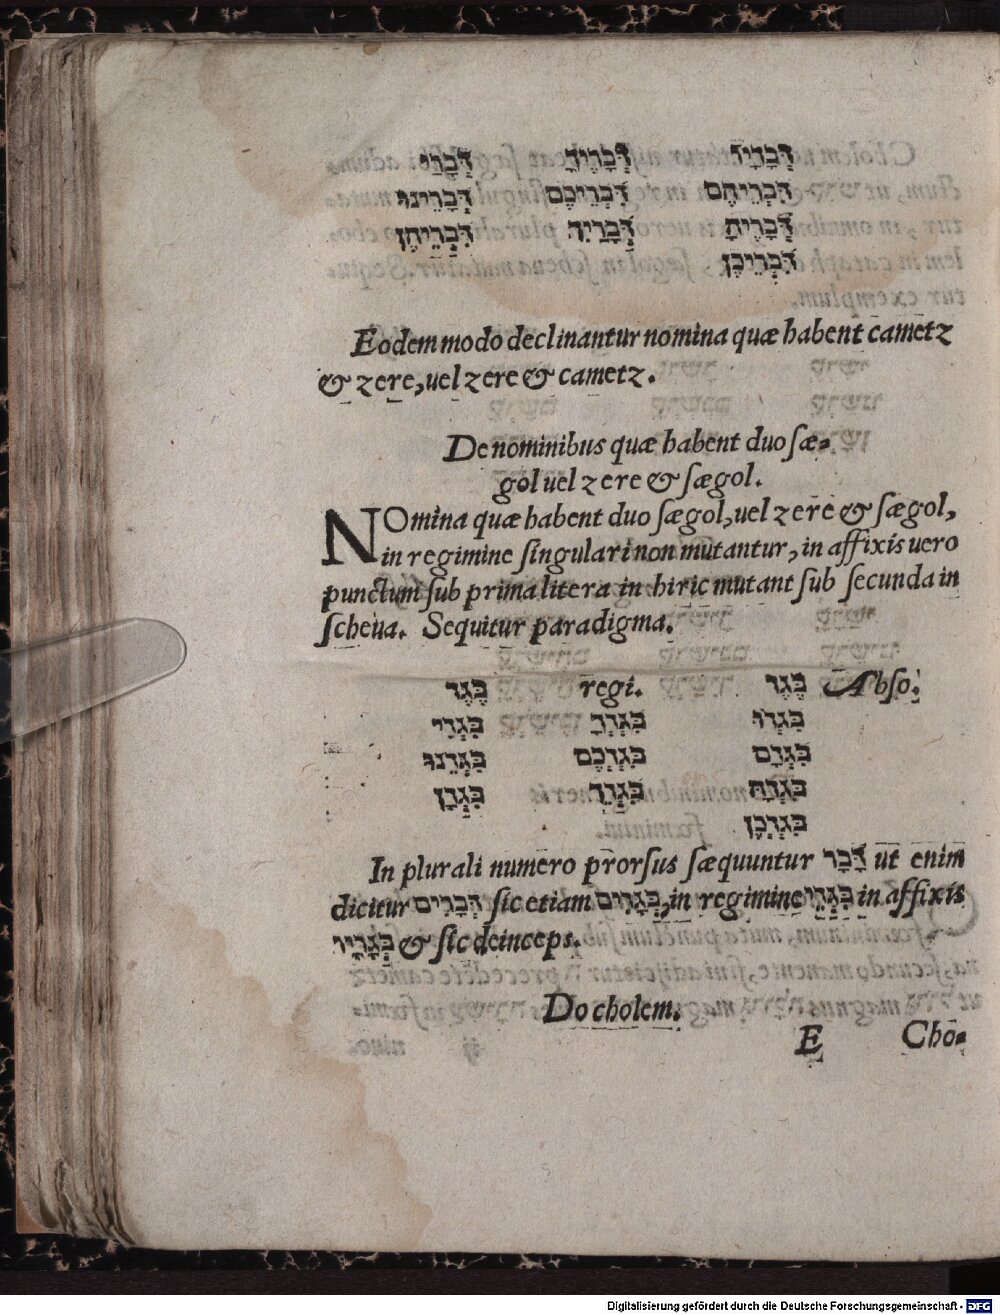 דְּבָרָיו דְּבָרֶיךָ דְּבָרַי
דִּבְרֵיהֶם דִּבְרֵיכֶם דְּבָרֵינוּ
דְּבָרֶיהָ דְּבָרַיִךְ דִּבְרֵיהֶן
דִּבְרֵיכֶן
Eodem modo declinantur nomina quæ habent cametz
& zere, uel zere & cametz.
De nominibus quæ habent duo sæ-
gol uel zere & sægol.
NOmina quæ habent duo sægol, uel zere & sægol,
in regimine singulari non mutantur, in affixis uero
punctum sub prima litera in hiric mutant sub secunda in
scheua. Sequitur paradigma.
Abso. בֶּגֶד regi. בֶּגֶד
בִּגְדוֹ בִּגְדְךָ בִּגְדִי
בִּגְדָם בִּגְדְכֶם בִּגְדֵנוּ
בִּגְדָהּ בִּגְדֵךְ בִּגְדָן
בִּגְדְכֶן
In plurali numero prorsus sæquuntur דָּבָר ut enim
dicitur דְּבָרִים sic etiam בְּגָדִים, in regimine בִּגְדֵי in affixis
בְּגָדָיו & sic deinceps.
Do cholem.
E Cho-
Digitalisierung gefördert durch die Deutsche Forschungsgemeinschaft - DFG